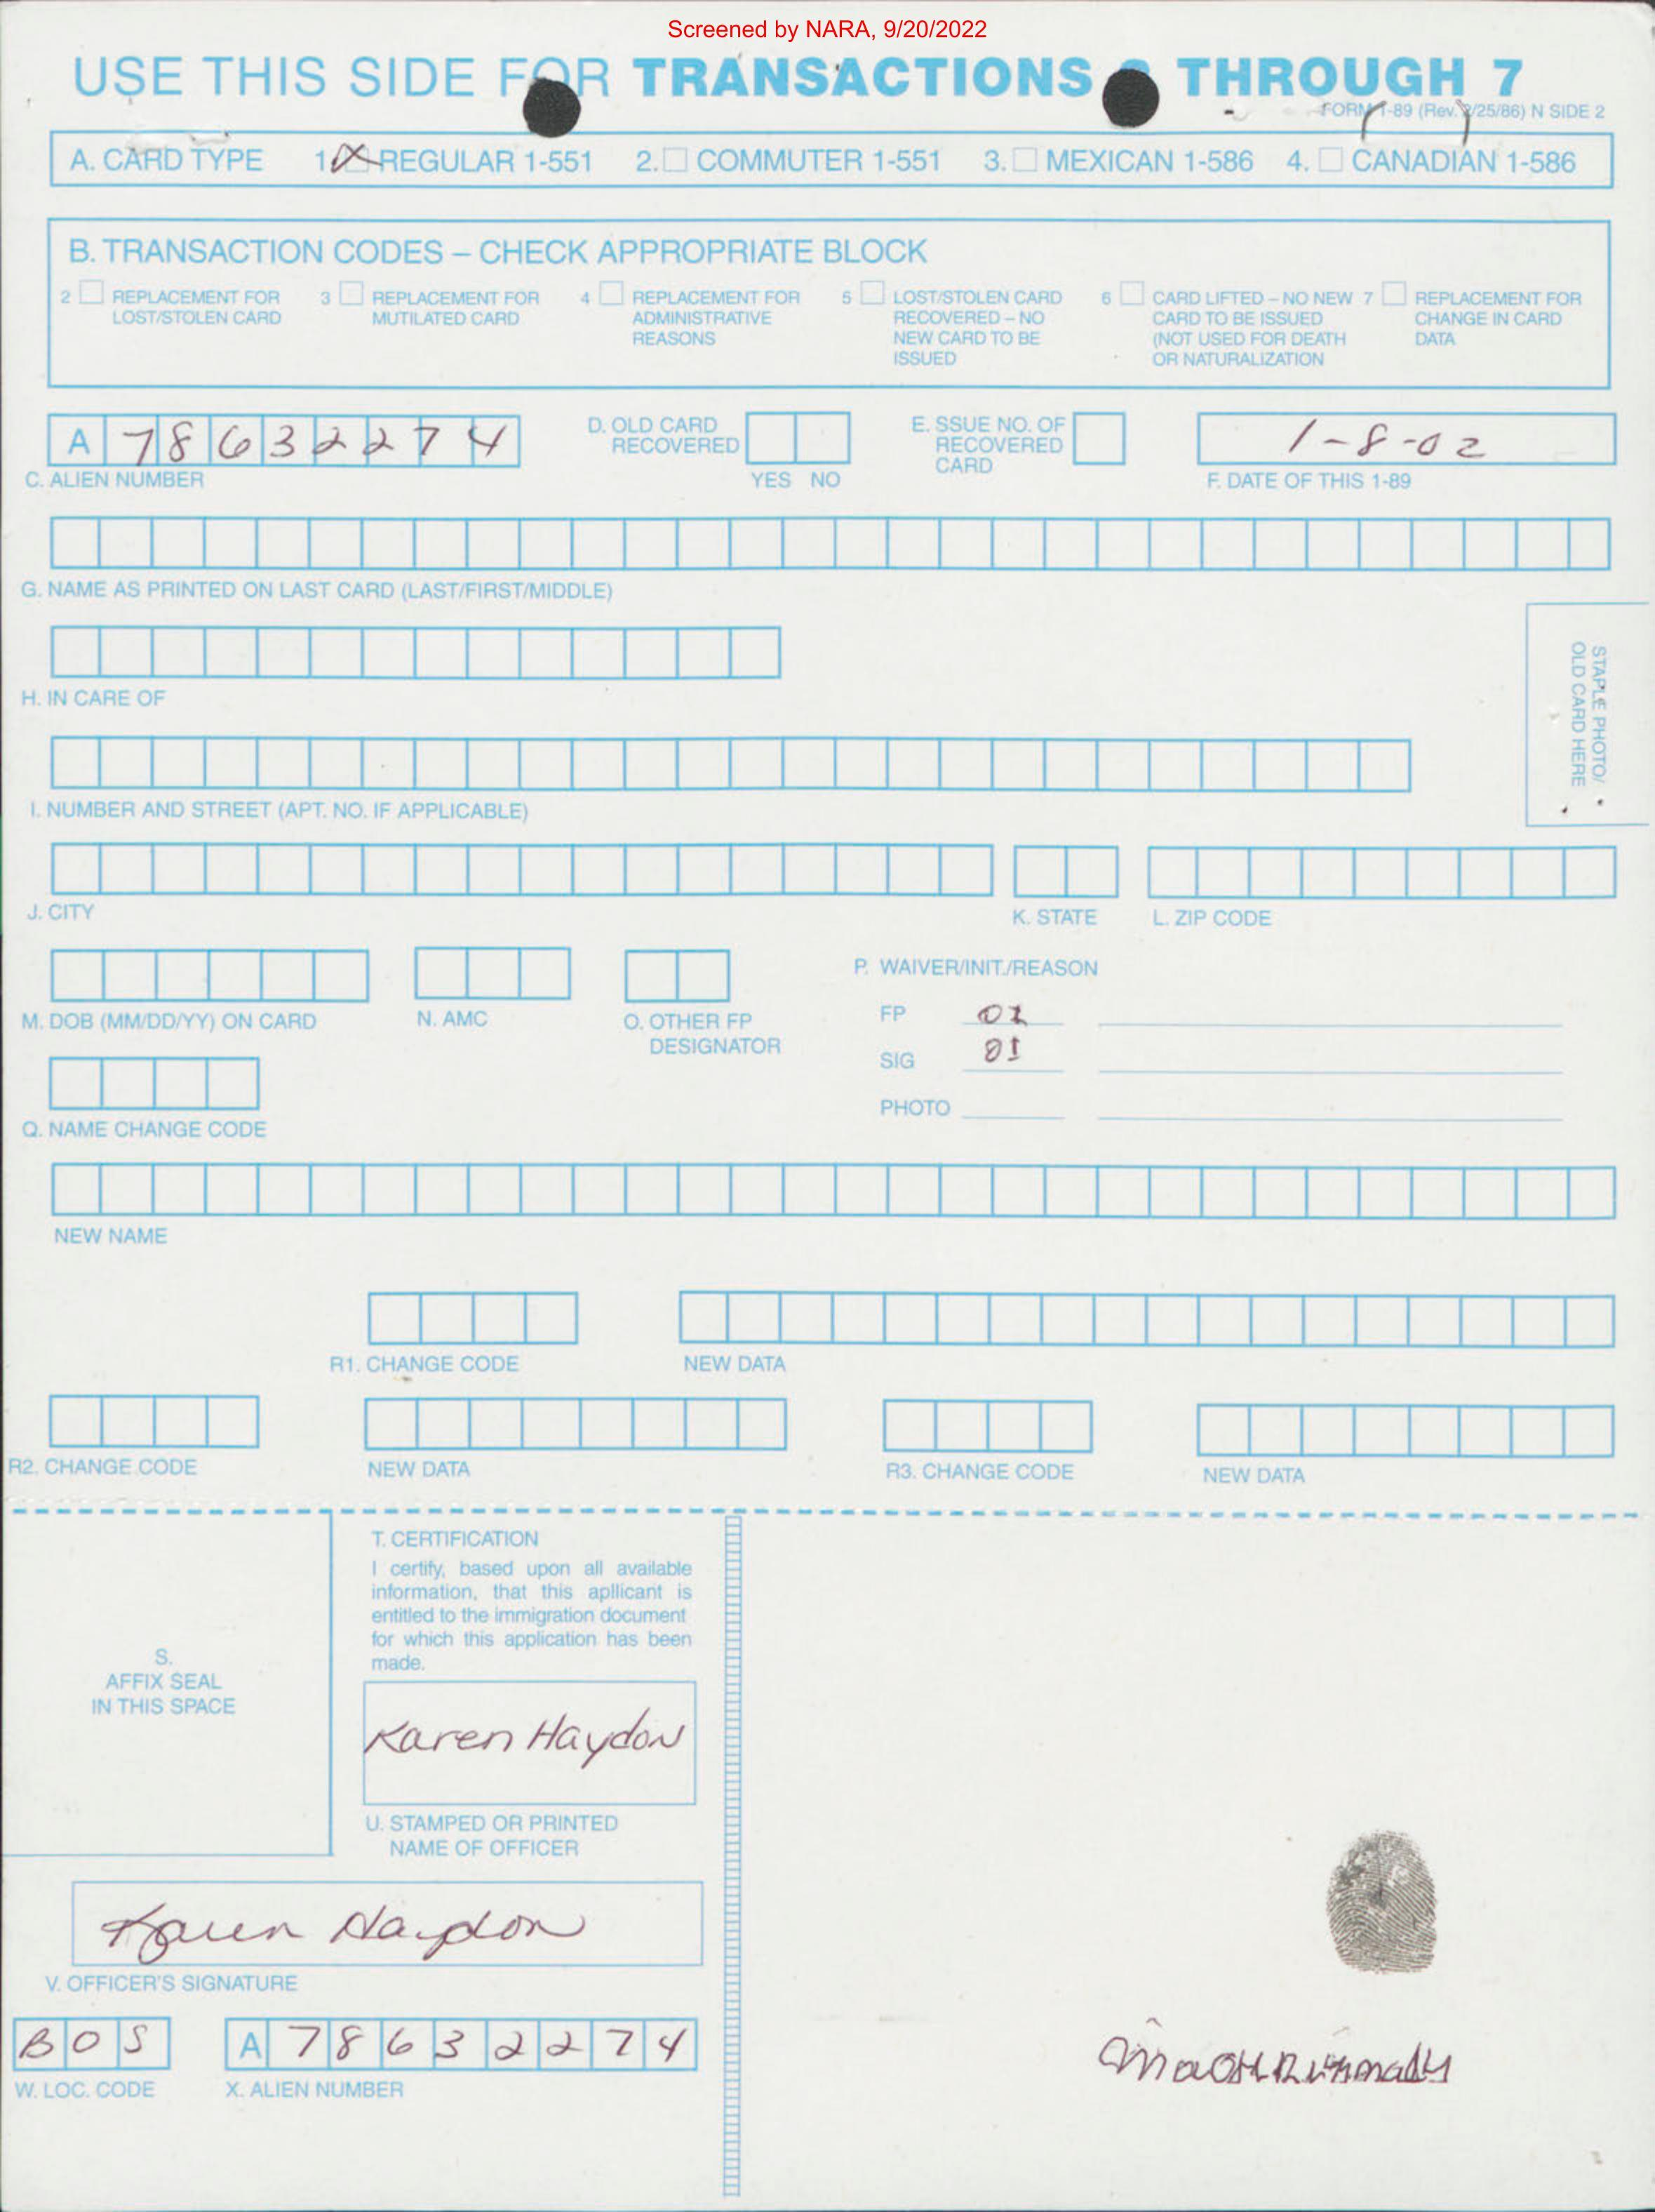 Screened by NARA, 9/20/2022
USE THIS SIDE FOR TRANSACTIONS THROUGH 7
FORM 1-89 (Rev. 2/25/86) N SIDE 2
A. CARD TYPE 1. REGULAR 1-551 2. COMMUTER 1-551 3. MEXICAN 1-586 4. CANADIAN 1-586
B. TRANSACTION CODES – CHECK APPROPRIATE BLOCK
2 REPLACEMENT FOR LOST/STOLEN CARD
3 REPLACEMENT FOR MUTILATED CARD
4 REPLACEMENT FOR ADMINISTRATIVE REASONS
5 LOST/STOLEN CARD RECOVERED – NO NEW CARD TO BE ISSUED
6 CARD LIFTED – NO NEW CARD TO BE ISSUED (NOT USED FOR DEATH OR NATURALIZATION
7 REPLACEMENT FOR CHANGE IN CARD DATA
A 78632274
C. ALIEN NUMBER
D. OLD CARD RECOVERED
YES NO
E. SSUE NO. OF RECOVERED CARD
1-8-02
F. DATE OF THIS 1-89
G. NAME AS PRINTED ON LAST CARD (LAST/FIRST/MIDDLE)
STAPLE PHOTO/
OLD CARD HERE
H. IN CARE OF
I. NUMBER AND STREET (APT. NO. IF APPLICABLE)
J. CITY
K. STATE
L. ZIP CODE
M. DOB (MM/DD/YY) ON CARD
N. AMC
O. OTHER FP DESIGNATOR
P. WAIVER/INIT./REASON
FP 01
SIG 01
PHOTO
Q. NAME CHANGE CODE
NEW NAME
R1. CHANGE CODE
NEW DATA
R2. CHANGE CODE
NEW DATA
R3. CHANGE CODE
NEW DATA
S.
AFFIX SEAL
IN THIS SPACE
T. CERTIFICATION
I certify, based upon all available
information, that this apllicant is
entitled to the immigration document
for which this application has been
made.
Karen Haydon
U. STAMPED OR PRINTED
NAME OF OFFICER
Karen Haydon
V. OFFICER'S SIGNATURE
BOS
W. LOC. CODE
A 78632274
X. ALIEN NUMBER